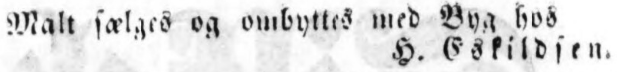 Malt sælges og ombyttes med Byg hos
H. Eskildsen.